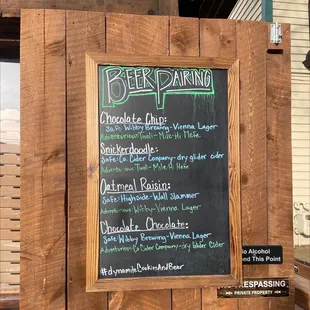 BEER PAIRING
Chocolate Chip:
Safe: Wibby Brewing - Vienna Lager
Adventurous: Tivoli - Mile Hi Hefe
Snickerdoodle:
Safe: Co. Cider Company - dry glider cider
Adventurous: Tivoli - Mile Hi Hefe
Oatmeal Raisin:
Safe: Highside - Wall Slammer
Adventurous: Wibby - Vienna Lager
Chocolate Chocolate:
Safe: Wibby Brewing - Vienna Lager
Adventurous: Co Cider Company - Dry Glider Cider
#dynamiteCookiesAndBeer
o Alcohol
nd This Point
TRESPASSING
PRIVATE PROPERTY